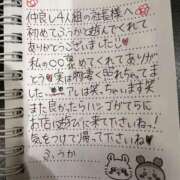 仲良し4人組の社長様へ
初めてふうかと遊んでくれて
ありがとうございました♡
私の○○褒めてくれてありが
とう 実は物凄く照れちゃってま
した… アレは笑っちゃいます笑
また良かったらハンゴがてらに
お店に遊びに来て下さいね!
気をつけて帰って下さいね
ふうか